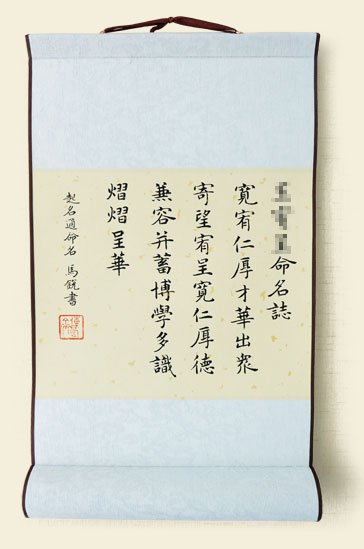 命名誌
寬宥仁厚才華出衆
寄望宥呈寬仁厚德
兼容并蓄博學多識
熠熠呈華
起名通命名 馬銳書